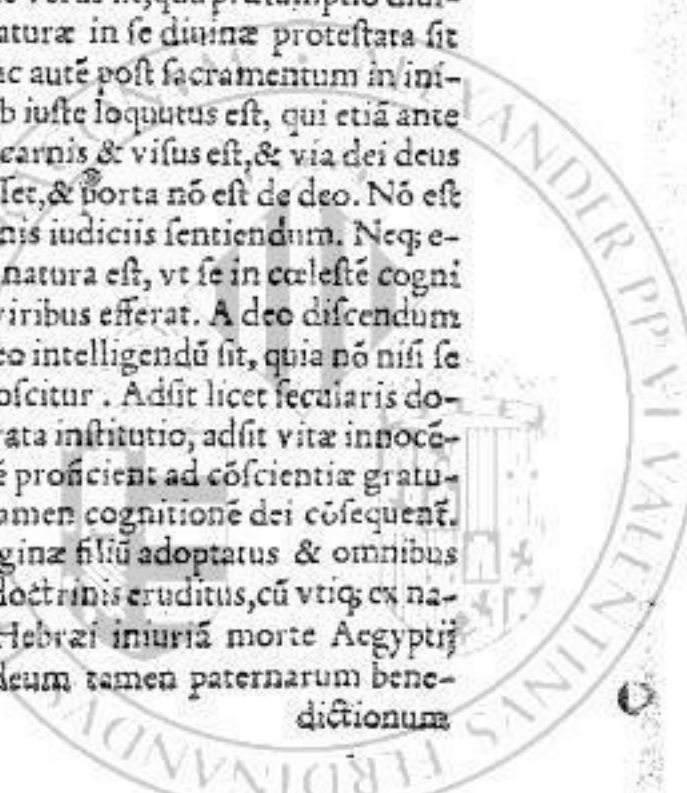 aturæ in ſe diuinæ proteſtata ſit
ac autē poſt ſacramentum in ini-
b iuſte loquutus eſt, qui etiā ante
carnis & viſus eſt,& via dei deus
ſſet,& porta nō eſt de deo. Nō eſt
nis iudiciis ſentiendum. Neq; e-
natura eſt, vt ſe in cœleſtē cogni
viribus efferat. A deo diſcendum
eo intelligendū ſit, quia nō niſi ſe
oſcitur . Adſit licet ſecularis do-
rata inſtitutio, adſit vitæ innocē-
ē proficient ad cōſcientiæ gratu-
amen cognitionē dei cōſequent.
ginæ filiū adoptatus & omnibus
doctrinis eruditus,cū vtiq; ex na-
Hebræi iniuriā morte Aegyptij
deum tamen paternarum bene-
dictionum
ALEXANDER PP VI VALENTINVS FERDINANDVS